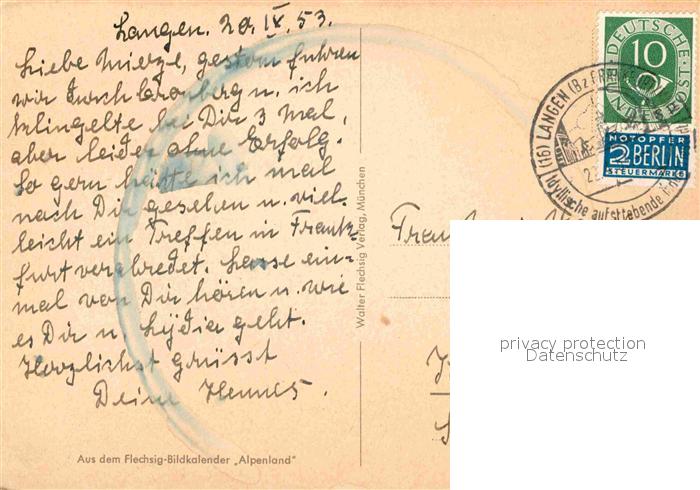 Langen, 20. IX. 53.
Liebe Mierze, gestern fuhren
wir durch Cronberg u. ich
klingelte bei Dir 3 Mal,
aber leider ohne Erfolg.
So gern hätte ich mal
nach Dir gesehen u. viel-
leicht ein Treffen in Frank-
furt verabredet. Lasse ein-
mal von Dir hören u. wie
es Dir u. Lydia geht.
Herzlichst grüsst
Deine
Aus dem Flechsig-Bildkalender „Alpenland"
Walter Flechsig Verlag, München
DEUTSCHE
10
BUNDESPOST
NOTOPFER
2 BERLIN
STEUERMARKE
(16) LANGEN (Bz.
Idyllische aufstrebende
privacy protection
Datenschutz